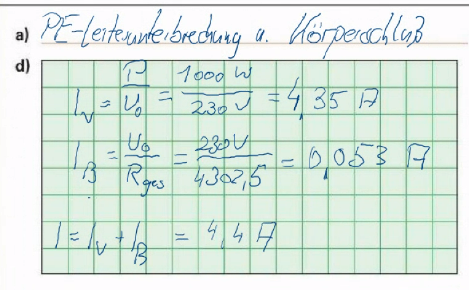 a) PE-Leiterunterbrechung u. Körperschluß
d)
I_V = P/U_0 = 1000 W/230 V = 4,35 A
I_B = U_0/R_ges = 230V/4302,5 = 0,053 A
I = I_V + I_B = 4,4 A